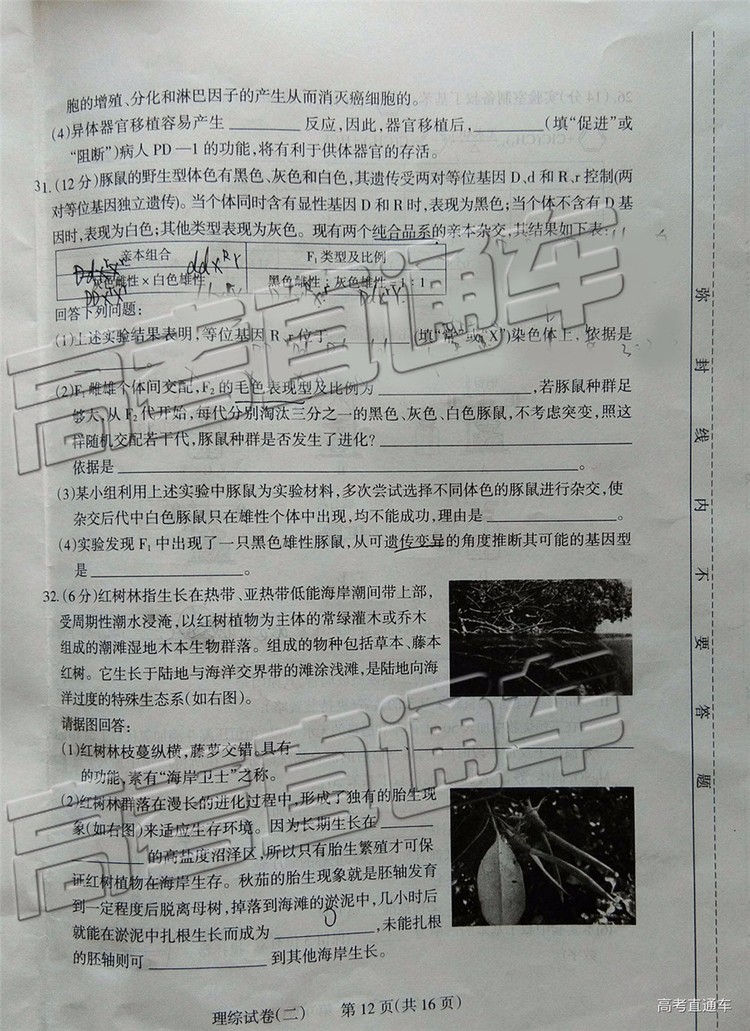 胞的增殖、分化和淋巴因子的产生从而消灭癌细胞的。
(4)异体器官移植容易产生 ________ 反应,因此,器官移植后, ________ (填“促进”或
“阻断”)病人 PD —1 的功能,将有利于供体器官的存活。
31.(12分)豚鼠的野生型体色有黑色、灰色和白色,其遗传受两对等位基因 D、d 和 R、r 控制(两
对等位基因独立遗传)。当个体同时含有显性基因 D 和 R 时,表现为黑色;当个体不含有 D 基
因时,表现为白色;其他类型表现为灰色。现有两个纯合品系的亲本杂交,其结果如下表:
亲本组合 F₁ 类型及比例
灰色雌性 × 白色雄性 黑色雌性 : 灰色雄性 = 1 : 1
回答下列问题:
(1)上述实验结果表明,等位基因 R、r 位于 ________ (填“常”或“X”)染色体上,依据是
(2)F₁ 雌雄个体间交配,F₂ 的毛色表现型及比例为 ________ ,若豚鼠种群足
够大,从 F₂ 代开始,每代分别淘汰三分之一的黑色、灰色、白色豚鼠,不考虑突变,照这
样随机交配若干代,豚鼠种群是否发生了进化? ________
依据是 ________ 。
(3)某小组利用上述实验中豚鼠为实验材料,多次尝试选择不同体色的豚鼠进行杂交,使
杂交后代中白色豚鼠只在雄性个体中出现,均不能成功,理由是 ________ 。
(4)实验发现 F₁ 中出现了一只黑色雄性豚鼠,从可遗传变异的角度推断其可能的基因型
是 ________ 。
32.(6分)红树林指生长在热带、亚热带低能海岸潮间带上部,
受周期性潮水浸淹,以红树植物为主体的常绿灌木或乔木
组成的潮滩湿地木本生物群落。组成的物种包括草本、藤本
红树。它生长于陆地与海洋交界带的滩涂浅滩,是陆地向海
洋过度的特殊生态系(如右图)。
请据图回答:
(1)红树林枝蔓纵横,藤萝交错。具有 ________
的功能,素有“海岸卫士”之称。
(2)红树林群落在漫长的进化过程中,形成了独有的胎生现
象(如右图)来适应生存环境。因为长期生长在 ________
________ 的高盐度沼泽区,所以只有胎生繁殖才可保
证红树植物在海岸生存。秋茄的胎生现象就是胚轴发育
到一定程度后脱离母树,掉落到海滩的淤泥中,几小时后
就能在淤泥中扎根生长而成为 ________ ,未能扎根
的胚轴则可 ________ 到其他海岸生长。
理综试卷(二) 第12页(共16页)
弥封线内不要答题
高考直通车
高考直通车
高考直通车